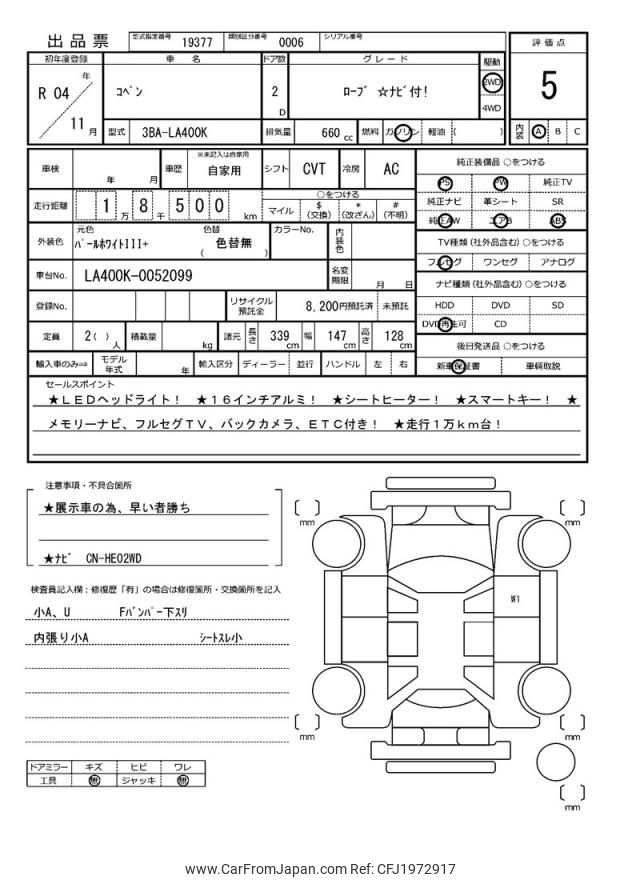 出品票 型式指定番号 19377 類別区分番号 0006 シリアル番号
初年度登録 車名 ドア数 グレード 駆動 評価点
R 04 年 11 月 コペン 2 D ローブ ☆ナビ付! 2WD 4WD 5
型式 3BA-LA400K 排気量 660 cc 燃料 ガソリン 軽油 ( ) 内装 A B C
車検 年 月 車歴 ※未記入は自家用 自家用 シフト CVT 冷房 AC 純正装備品 ○をつける
PS PW 純正TV
走行距離 1 万 8 千 5 0 0 km ○をつける マイル $ (交換) * (改ざん) # (不明) 純正ナビ 革シート SR
純正AW エアB ABS
外装色 元色 パールホワイトIII+ 色替 ( 色替無 ) カラーNo. 内装色 TV種類 (社外品含む) ○をつける
フルセグ ワンセグ アナログ
車台No. LA400K-0052099 名変期限 月 日 ナビ種類 (社外品含む) ○をつける
登録No. リサイクル預託金 8,200円預託済 未預託 HDD DVD SD
DVD再生可 CD
定員 2 ( ) 人 積載量 kg 諸元 長さ 339 cm 幅 147 cm 高さ 128 cm 後日発送品 ○をつける
輸入車のみ⇒ モデル年式 年 輸入区分 ディーラー 並行 ハンドル 左 右 新車保証書 車輌取説
セールスポイント
★LEDヘッドライト! ★16インチアルミ! ★シートヒーター! ★スマートキー! ★
メモリーナビ、フルセグTV、バックカメラ、ETC付き! ★走行1万km台!
注意事項・不具合箇所
★展示車の為、早い者勝ち
★ナビ CN-HE02WD
検査員記入欄:修復歴「有」の場合は修復箇所・交換箇所を記入
小A、U Fバンパー下スリ
内張り小A シートスレ小
ドアミラー キズ ヒビ ワレ
工具 無 ジャッキ 無
mm
mm
W1
mm
mm
mm
www.CarFromJapan.com Ref: CFJ1972917